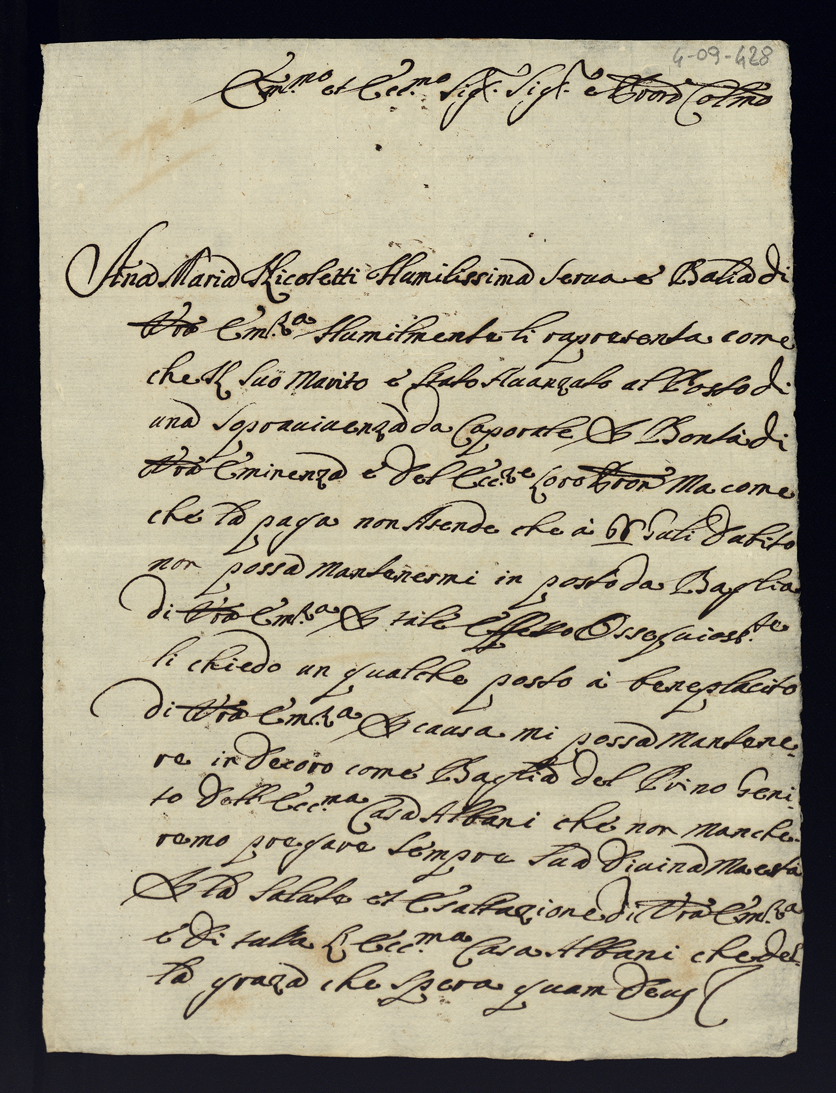 4-09-428
Em.mo et Ecc.mo Sig.r Sig.r e Pron Colmo
Ana Maria Nicoletti Humilissima Serua e Balia di
Vra Em.za Humilmente li rapresenta come
che Il Suo Marito e Stato Auanzato al Posto di
una Soprauiuenza da Caporale, P Bontà di
Vra Eminenza e del Ecc.ze Loro Pron Ma come
che la paga non Asende che à Giuli Dubito
non possa Mantenermi in posto da Baglia
di Vra Em.za P tale Effetto Ossequios.te
li chiedo un qualche posto à beneplacito
di Vra Em.za P causa mi possa Mantene-
re in Decoro come Baglia del Primo Geni-
to dell Ecc.ma Casa Albani che non manche-
remo pregare Sempre Sua Diuina Maestà
P la Salute et Esaltazione di Vra Em.za
e di tutta L Ecc.ma Casa Albani che del-
la graza che Spera quam Deus